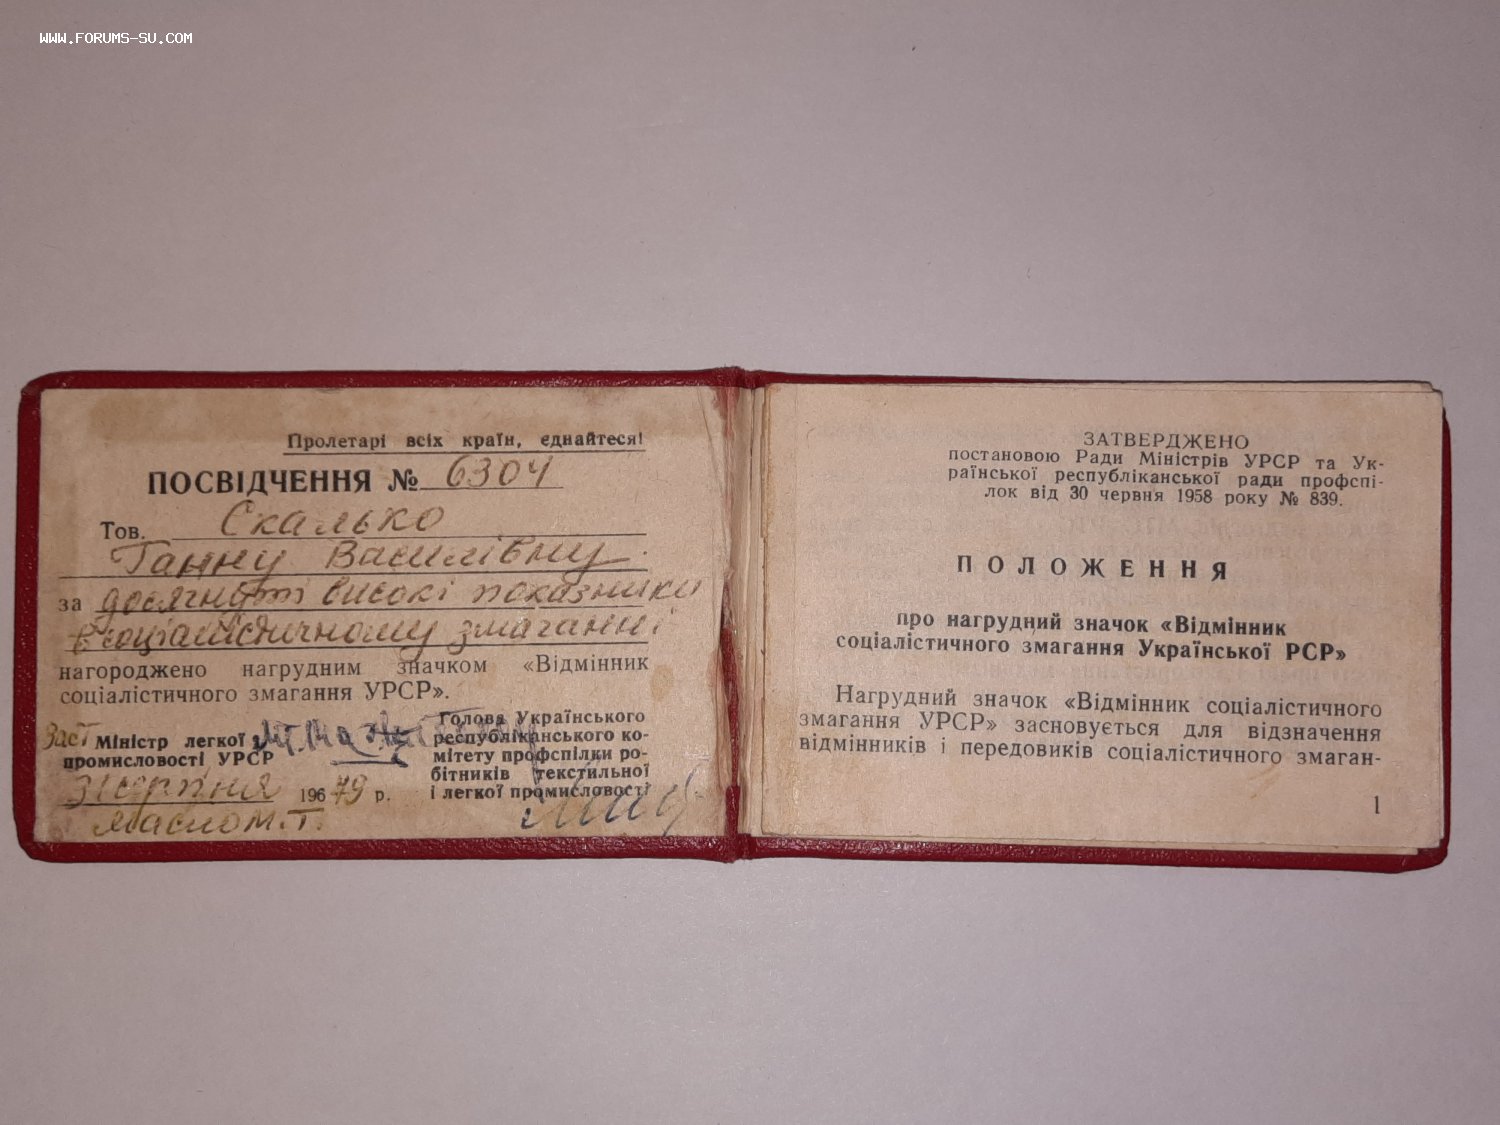 WWW.FORUMS-SU.COM
Пролетарі всіх країн, єднайтеся!
ПОСВІДЧЕННЯ № 6304
Тов. Скалько
Ганну Василівну
за досягнуті високі показники
в соціалістичному змаганні
нагороджено нагрудним значком «Відмінник
соціалістичного змагання УРСР».
Заст Міністр легкої
промисловості УРСР
31 серпня 1967 р.
Масло М. Т.
Голова Українського
республіканського ко-
мітету профспілки ро-
бітників текстильної
і легкої промисловості
ЗАТВЕРДЖЕНО
постановою Ради Міністрів УРСР та Ук-
раїнської республіканської ради профспі-
лок від 30 червня 1958 року № 839.
ПОЛОЖЕННЯ
про нагрудний значок «Відмінник
соціалістичного змагання Української РСР»
Нагрудний значок «Відмінник соціалістичного
змагання УРСР» засновується для відзначення
відмінників і передовиків соціалістичного змаган-
1